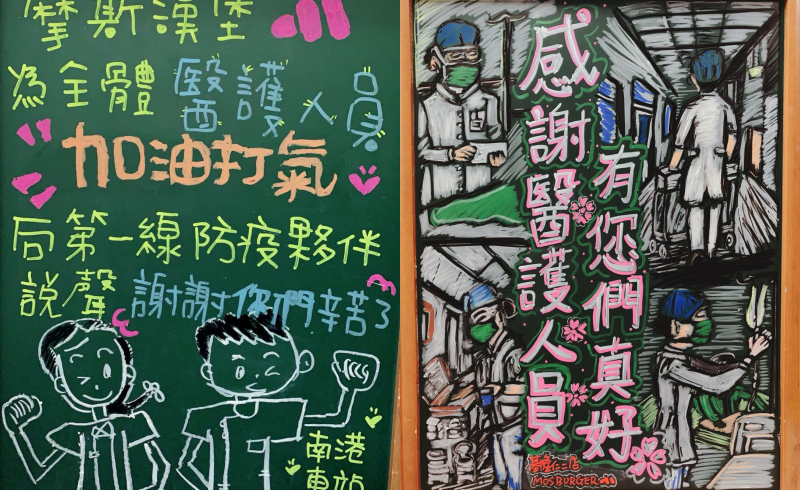 摩斯漢堡
為全體醫護人員
加油打氣
向第一線防疫夥伴
說聲謝謝你們辛苦了
南港
車站
感謝醫護人員
有您們真好
基隆仁二店
MOS BURGER